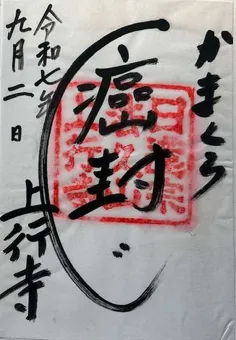 かまくら
癌封じ
上行寺
令和七年
九月二日